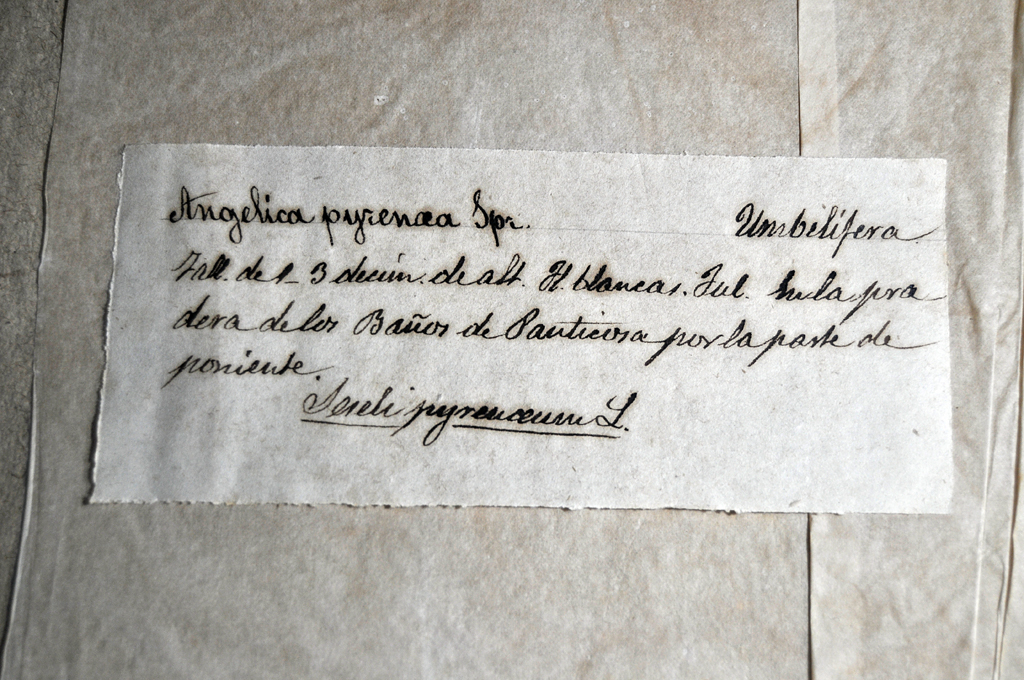 Angelica pyrenæa Spr. Umbelífera
Tall. de 1_ 3 decím. de alt. Fl. blancas. Jul. En la pra
dera de los Baños de Panticosa por la parte de
poniente.
Seseli pyrenæum L.